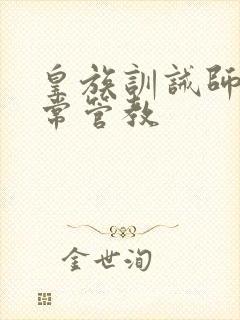 皇族訓誡師
常管教
金世洵